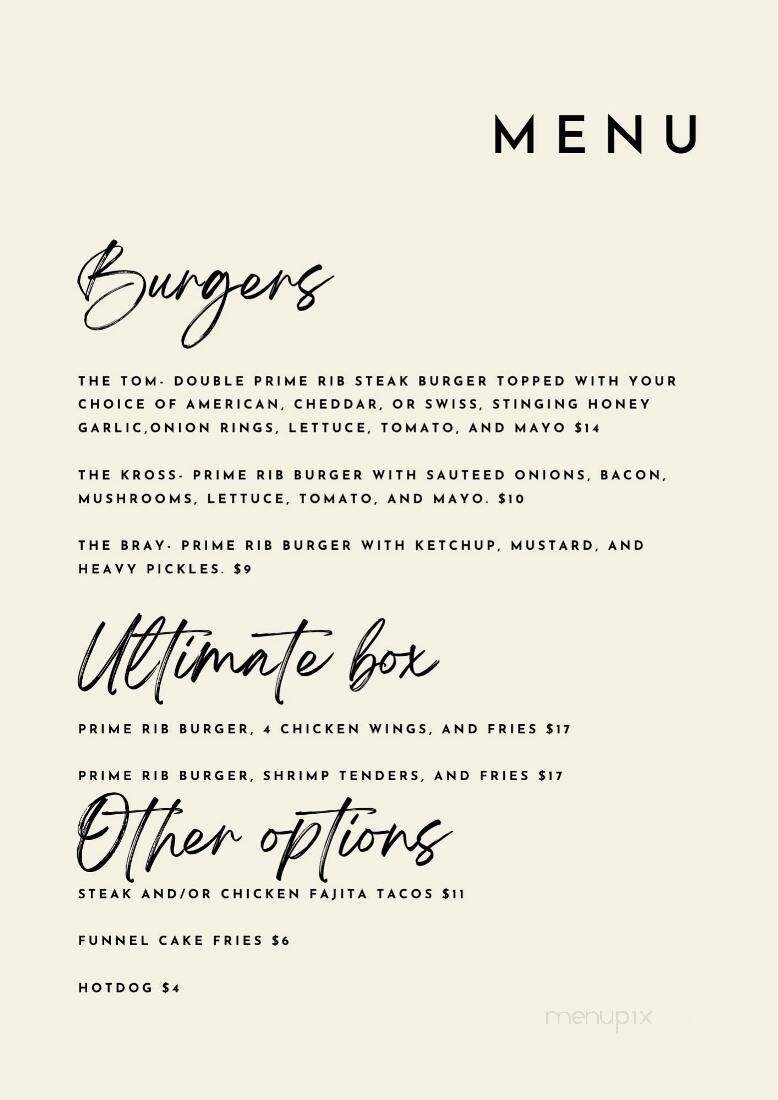 MENU
Burgers
THE TOM- DOUBLE PRIME RIB STEAK BURGER TOPPED WITH YOUR
CHOICE OF AMERICAN, CHEDDAR, OR SWISS, STINGING HONEY
GARLIC,ONION RINGS, LETTUCE, TOMATO, AND MAYO $14
THE KROSS- PRIME RIB BURGER WITH SAUTEED ONIONS, BACON,
MUSHROOMS, LETTUCE, TOMATO, AND MAYO. $10
THE BRAY- PRIME RIB BURGER WITH KETCHUP, MUSTARD, AND
HEAVY PICKLES. $9
Ultimate box
PRIME RIB BURGER, 4 CHICKEN WINGS, AND FRIES $17
PRIME RIB BURGER, SHRIMP TENDERS, AND FRIES $17
Other options
STEAK AND/OR CHICKEN FAJITA TACOS $11
FUNNEL CAKE FRIES $6
HOTDOG $4
menupix